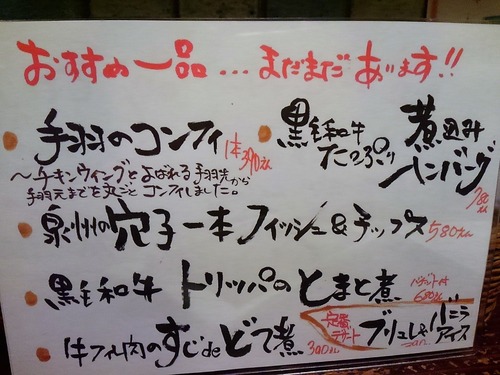 おすすめ一品...まだまだあります!!
手羽のコンフィ 1本390えん
〜チキンウィングとよばれる手羽先から
手羽元まどを丸ごとコンフィしました。
黒毛和牛たっぷり煮込みハンバーグ 780えん
泉州の穴子一本フィッシュ&チップス 580えん
黒毛和牛 トリッパのとまと煮 バゲット付 680えん
牛フィレ肉のすじdeどて煮 390えん
定番デザート ブリュレ&バニラアイス